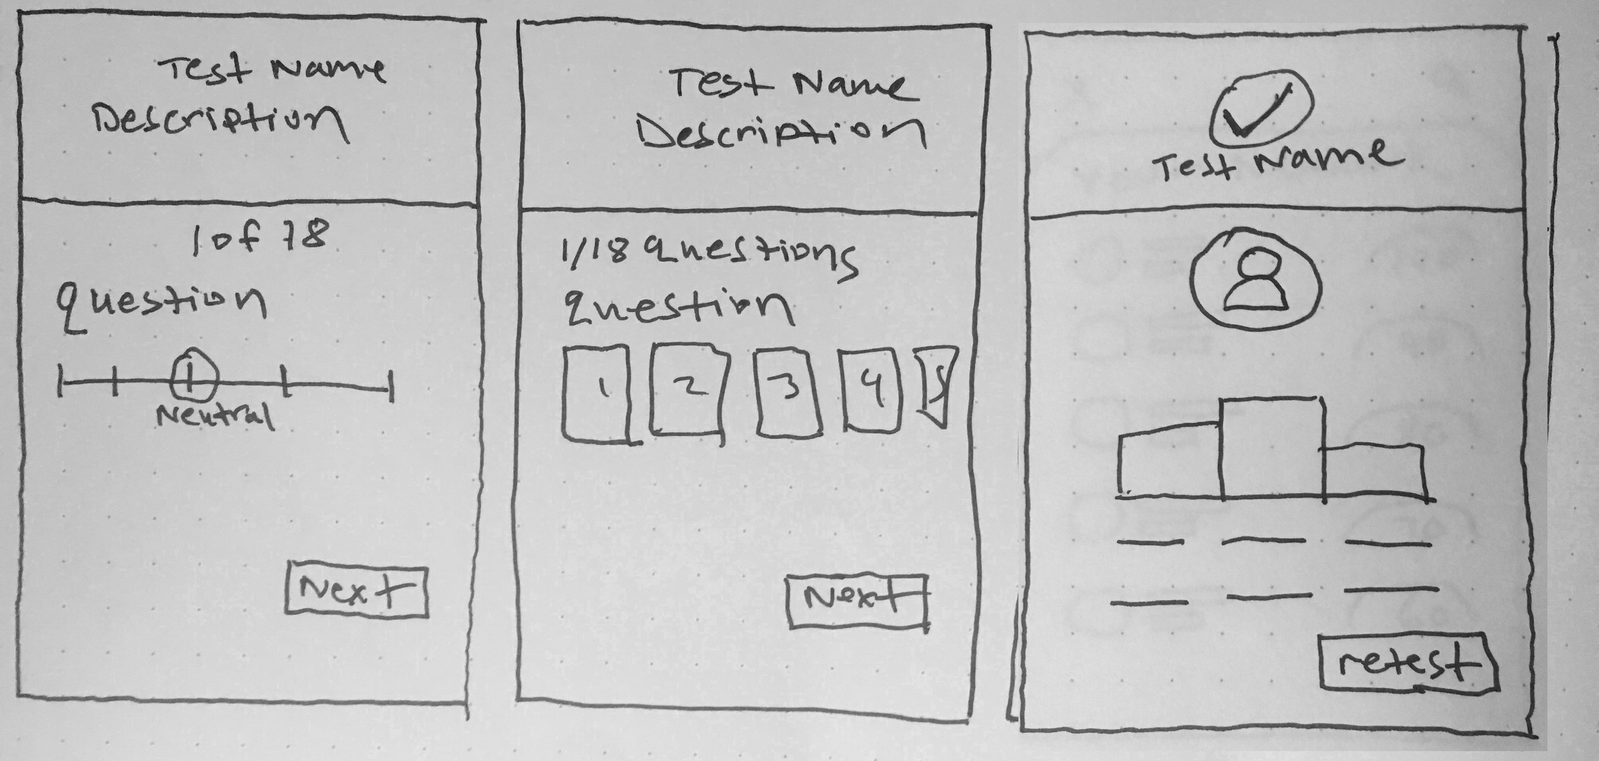 Test Name
Description
1 of 18
question
Neutral
Next
Test Name
Description
1/18 questions
question
1 2 3 4 5
Next
Test Name
retest